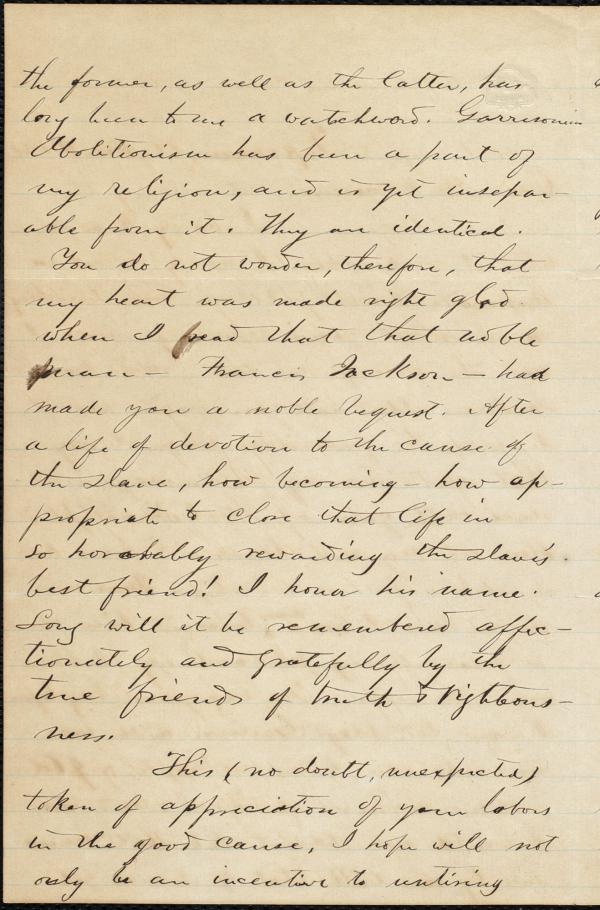 the former, as well as the latter, has
long been to me a watchword. Garrisonian
Abolitionism has been a part of
my religion, and is yet insepar-
able from it. They are identical.
You do not wonder, therefore, that
my heart was made right glad
when I read that that noble
man - Francis Jackson - had
made you a noble bequest. After
a life of devotion to the cause of
the slave, how becoming - how ap-
propriate to close that life in
so honorably rewarding the slave's
best friend! I honor his name.
Long will it be remembered affec-
tionately and gratefully by the
true friends of truth & righteous-
ness.
This (no doubt, unexpected)
token of appreciation of your labors
in the good cause, I hope will not
only be an incentive to untiring